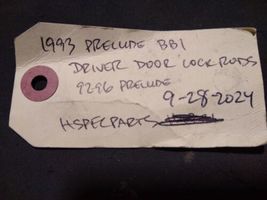 1993 PRELUDE BB1
DRIVER DOOR LOCK RODS
9296 PRELUDE
9-28-2024
HSPECPARTS